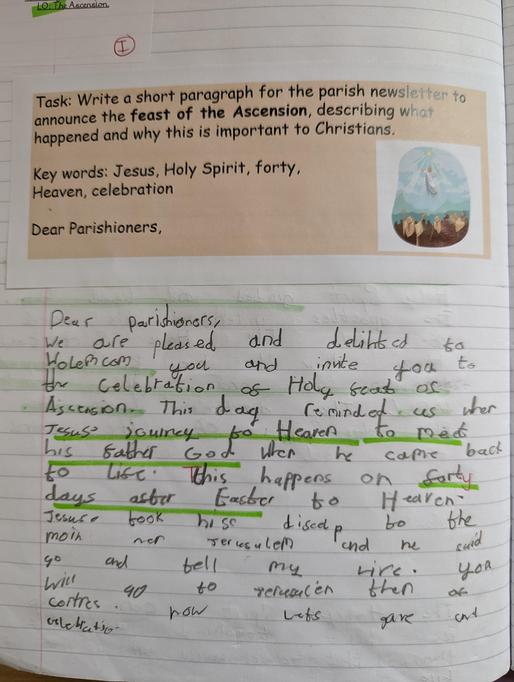 LO: The Ascension
I
Task: Write a short paragraph for the parish newsletter to
announce the feast of the Ascension, describing what
happened and why this is important to Christians.
Key words: Jesus, Holy Spirit, forty,
Heaven, celebration
Dear Parishioners,
Dear parishioners,
We are pleased and delihted to
you and invite you to
the Celebration of Holy feast of
Ascension. This day reminded us wher
Jesus journey to Heaven to meet
his father God wher he came back
to Life. This happens on forty
days after Easter to Heaven.
Jesus took his to the
and he said
go and tell my you
will go to then of
now Lets and